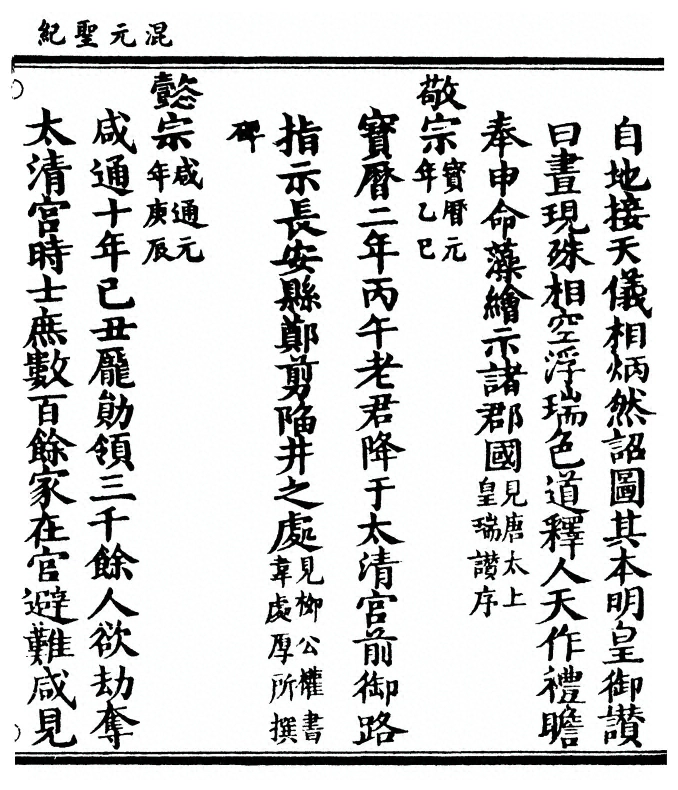 混元聖紀
自地接天儀相炳然詔圖其本明皇御讃
曰晝現殊相空浮瑞色道釋人天作禮瞻
奉申命藻繪示諸郡國見唐太上皇瑞讃序
敬宗寶曆元年乙巳
寶曆二年丙午老君降于太清宮前御路
指示長安縣鄭剪陥井之處見柳公權書韋處厚所撰
碑
懿宗咸通元年庚辰
咸通十年己丑龐勛領三千餘人欲劫奪
太清宮時士庶數百餘家在宮避難咸見